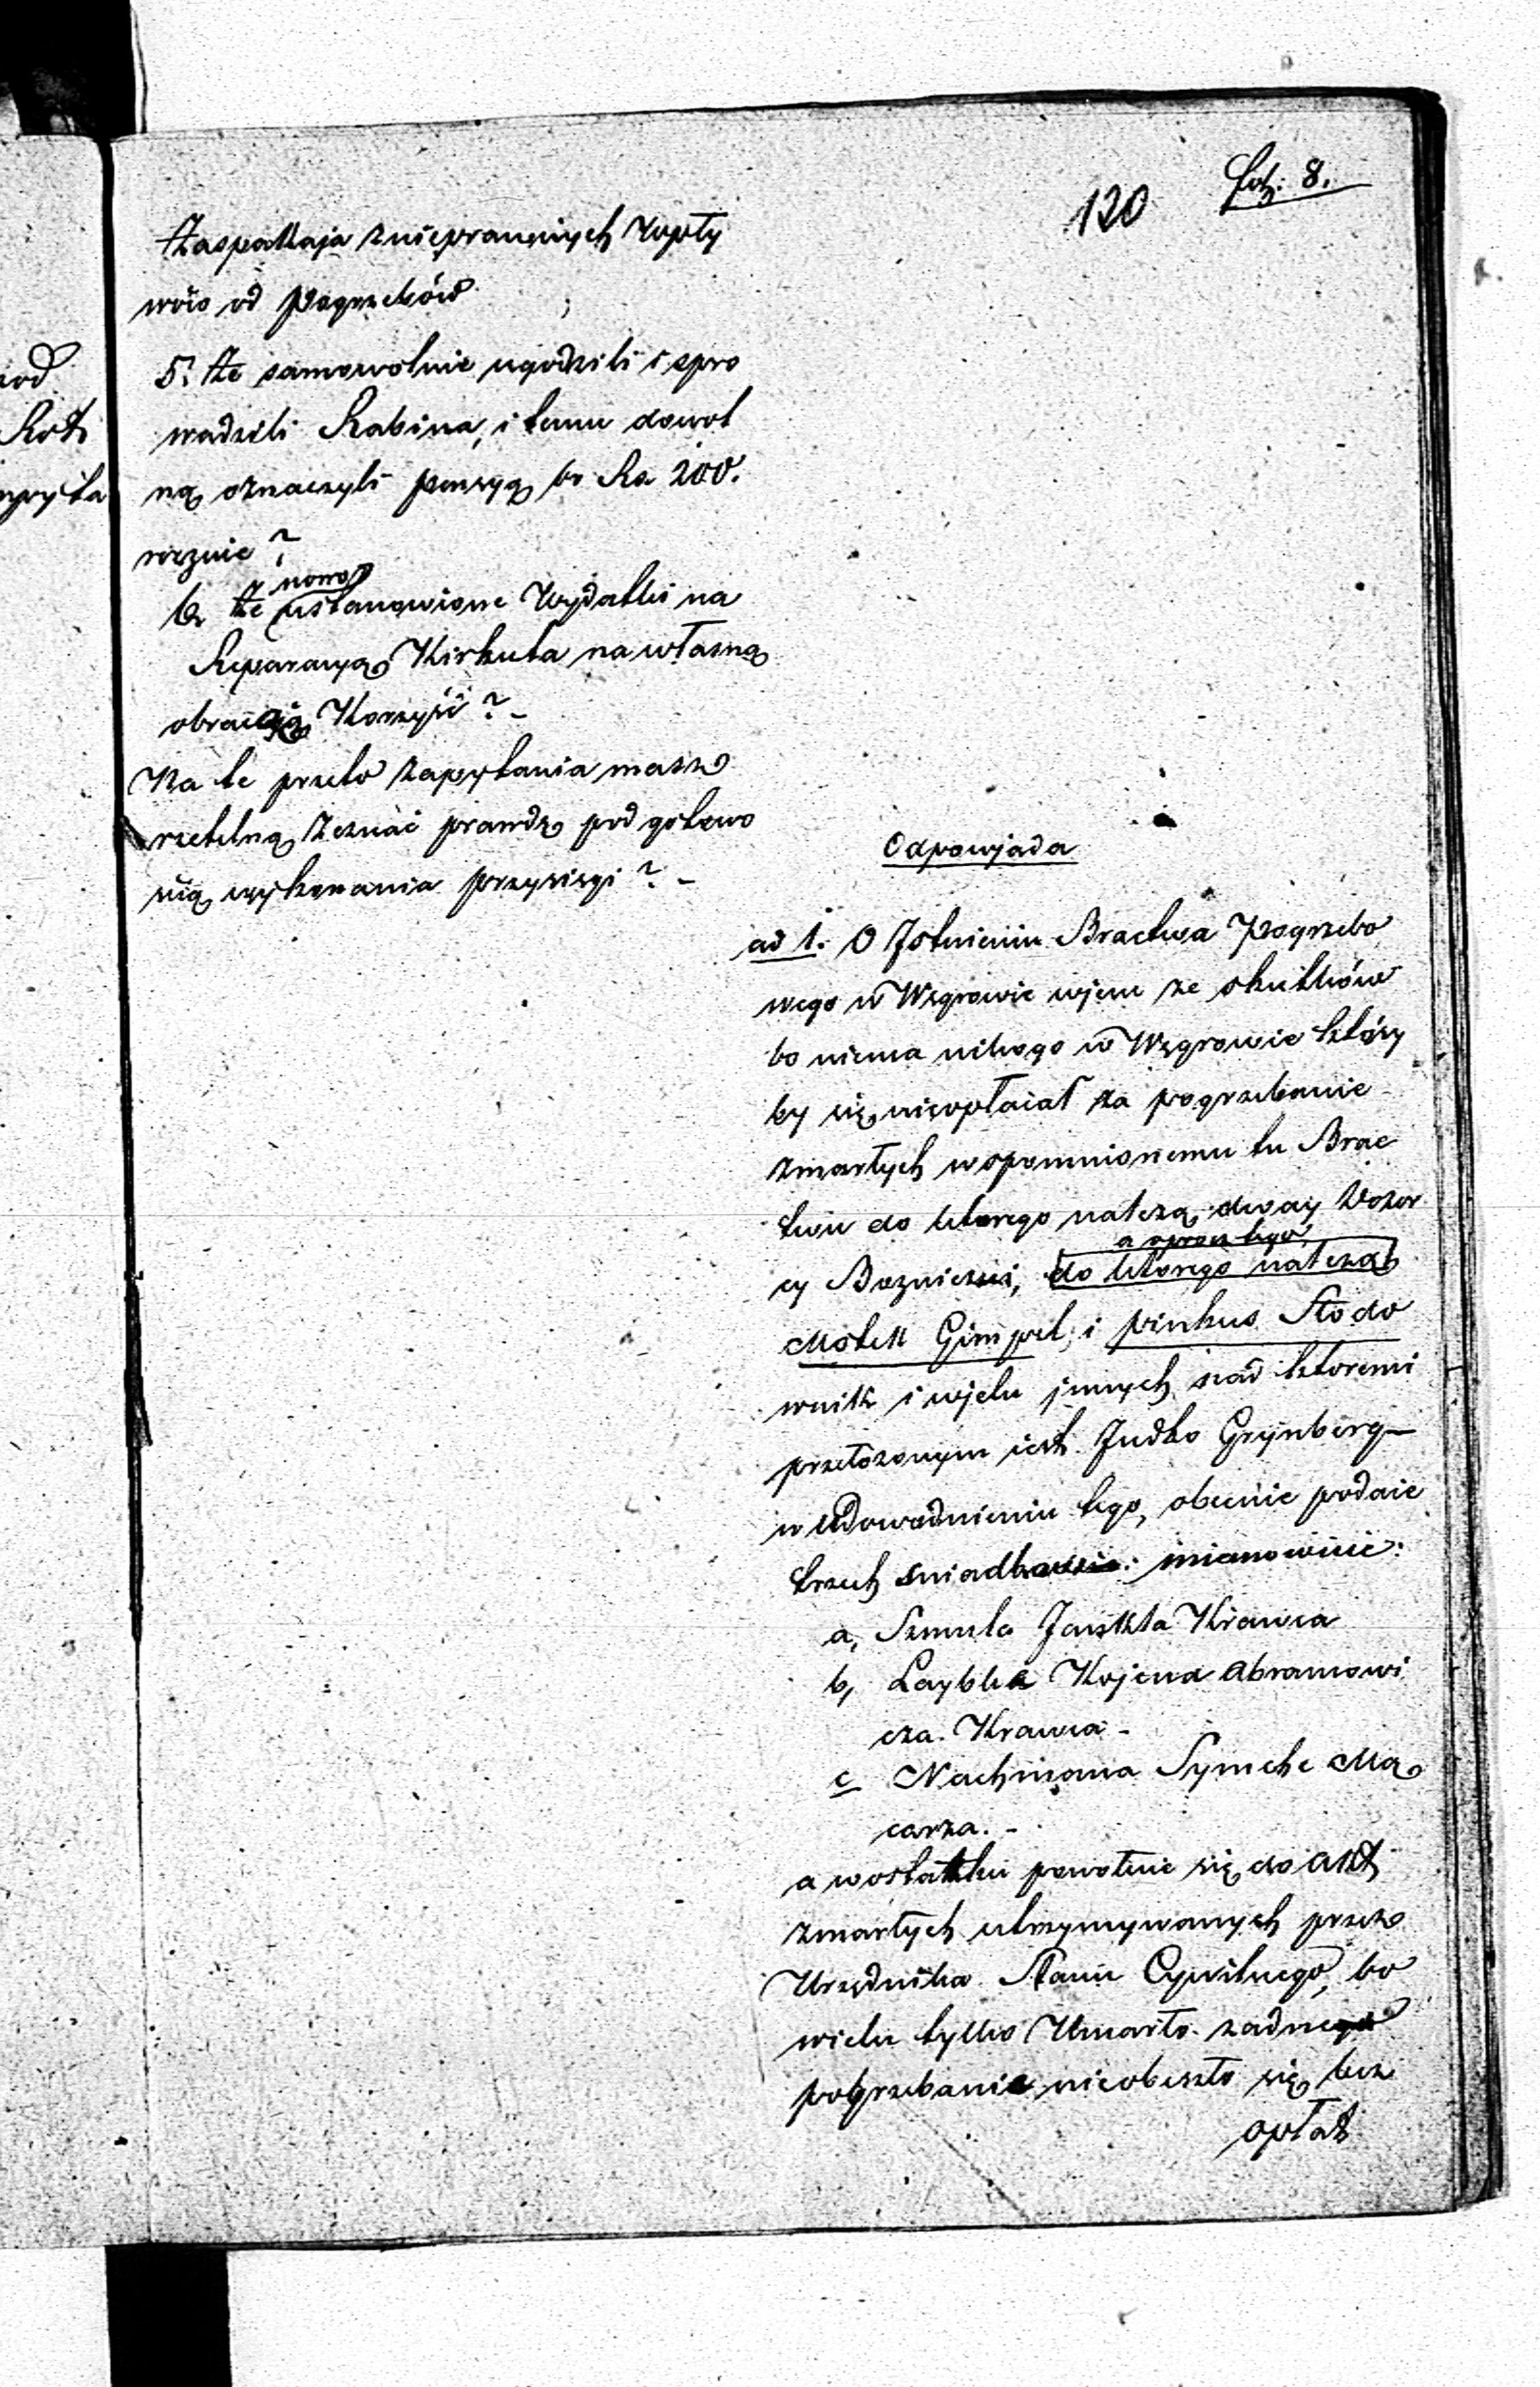 120 Fol: 8.
Zaspakaja z nieprawnych Wpły
wów od Pogrzebów
5. Że samowolnie ugodzili i spro
wadzili Rabina, i temu dowol
ną oznaczyli pensyą to Rs 200.
rocznie?
nowo
6, Że ustanowione Wydatki na
Reparacyą Kirkuta na własną
obracają Korzyść? -
Na te przeto Zapytania masz
rzetelną Zeznać prawdę pod gotowo
ścią wykonania przysięgi? -
Odpowjada
ad 1. O Jstnieniu Bractwa Pogrzebo
wego w Węgrowie wjem ze skutków
bo niema nikogo w Węgrowie który
by się nieopłaiał za pogrzebanie
zmarłych wspomnionemu tu Brac
twu do którego należą dway Dozor
a oprocz tego
cy Bozniczni, do ktorego należą
Motek Gimpel, i pinkus Stodo
wnik i wjelu jnnych nad ktoremi
przełożonym iest Judko Grynberg -
w udowodnieniu tego, obecnie podaie
trzech swiadkow: mianowicie:
a, Szmula Krawca
b, Laybka Kojena Abramowi
cza Krawca -
c Nachmana Symche Mą
carza. -
a wostatku powołuie się do akt
zmarłych utrzymywanych przez
Urzędnika Stanu Cywilnego, bo
wielu tylko Umarło żadnego
pogrzebanie nieobeszło się bez
opłat